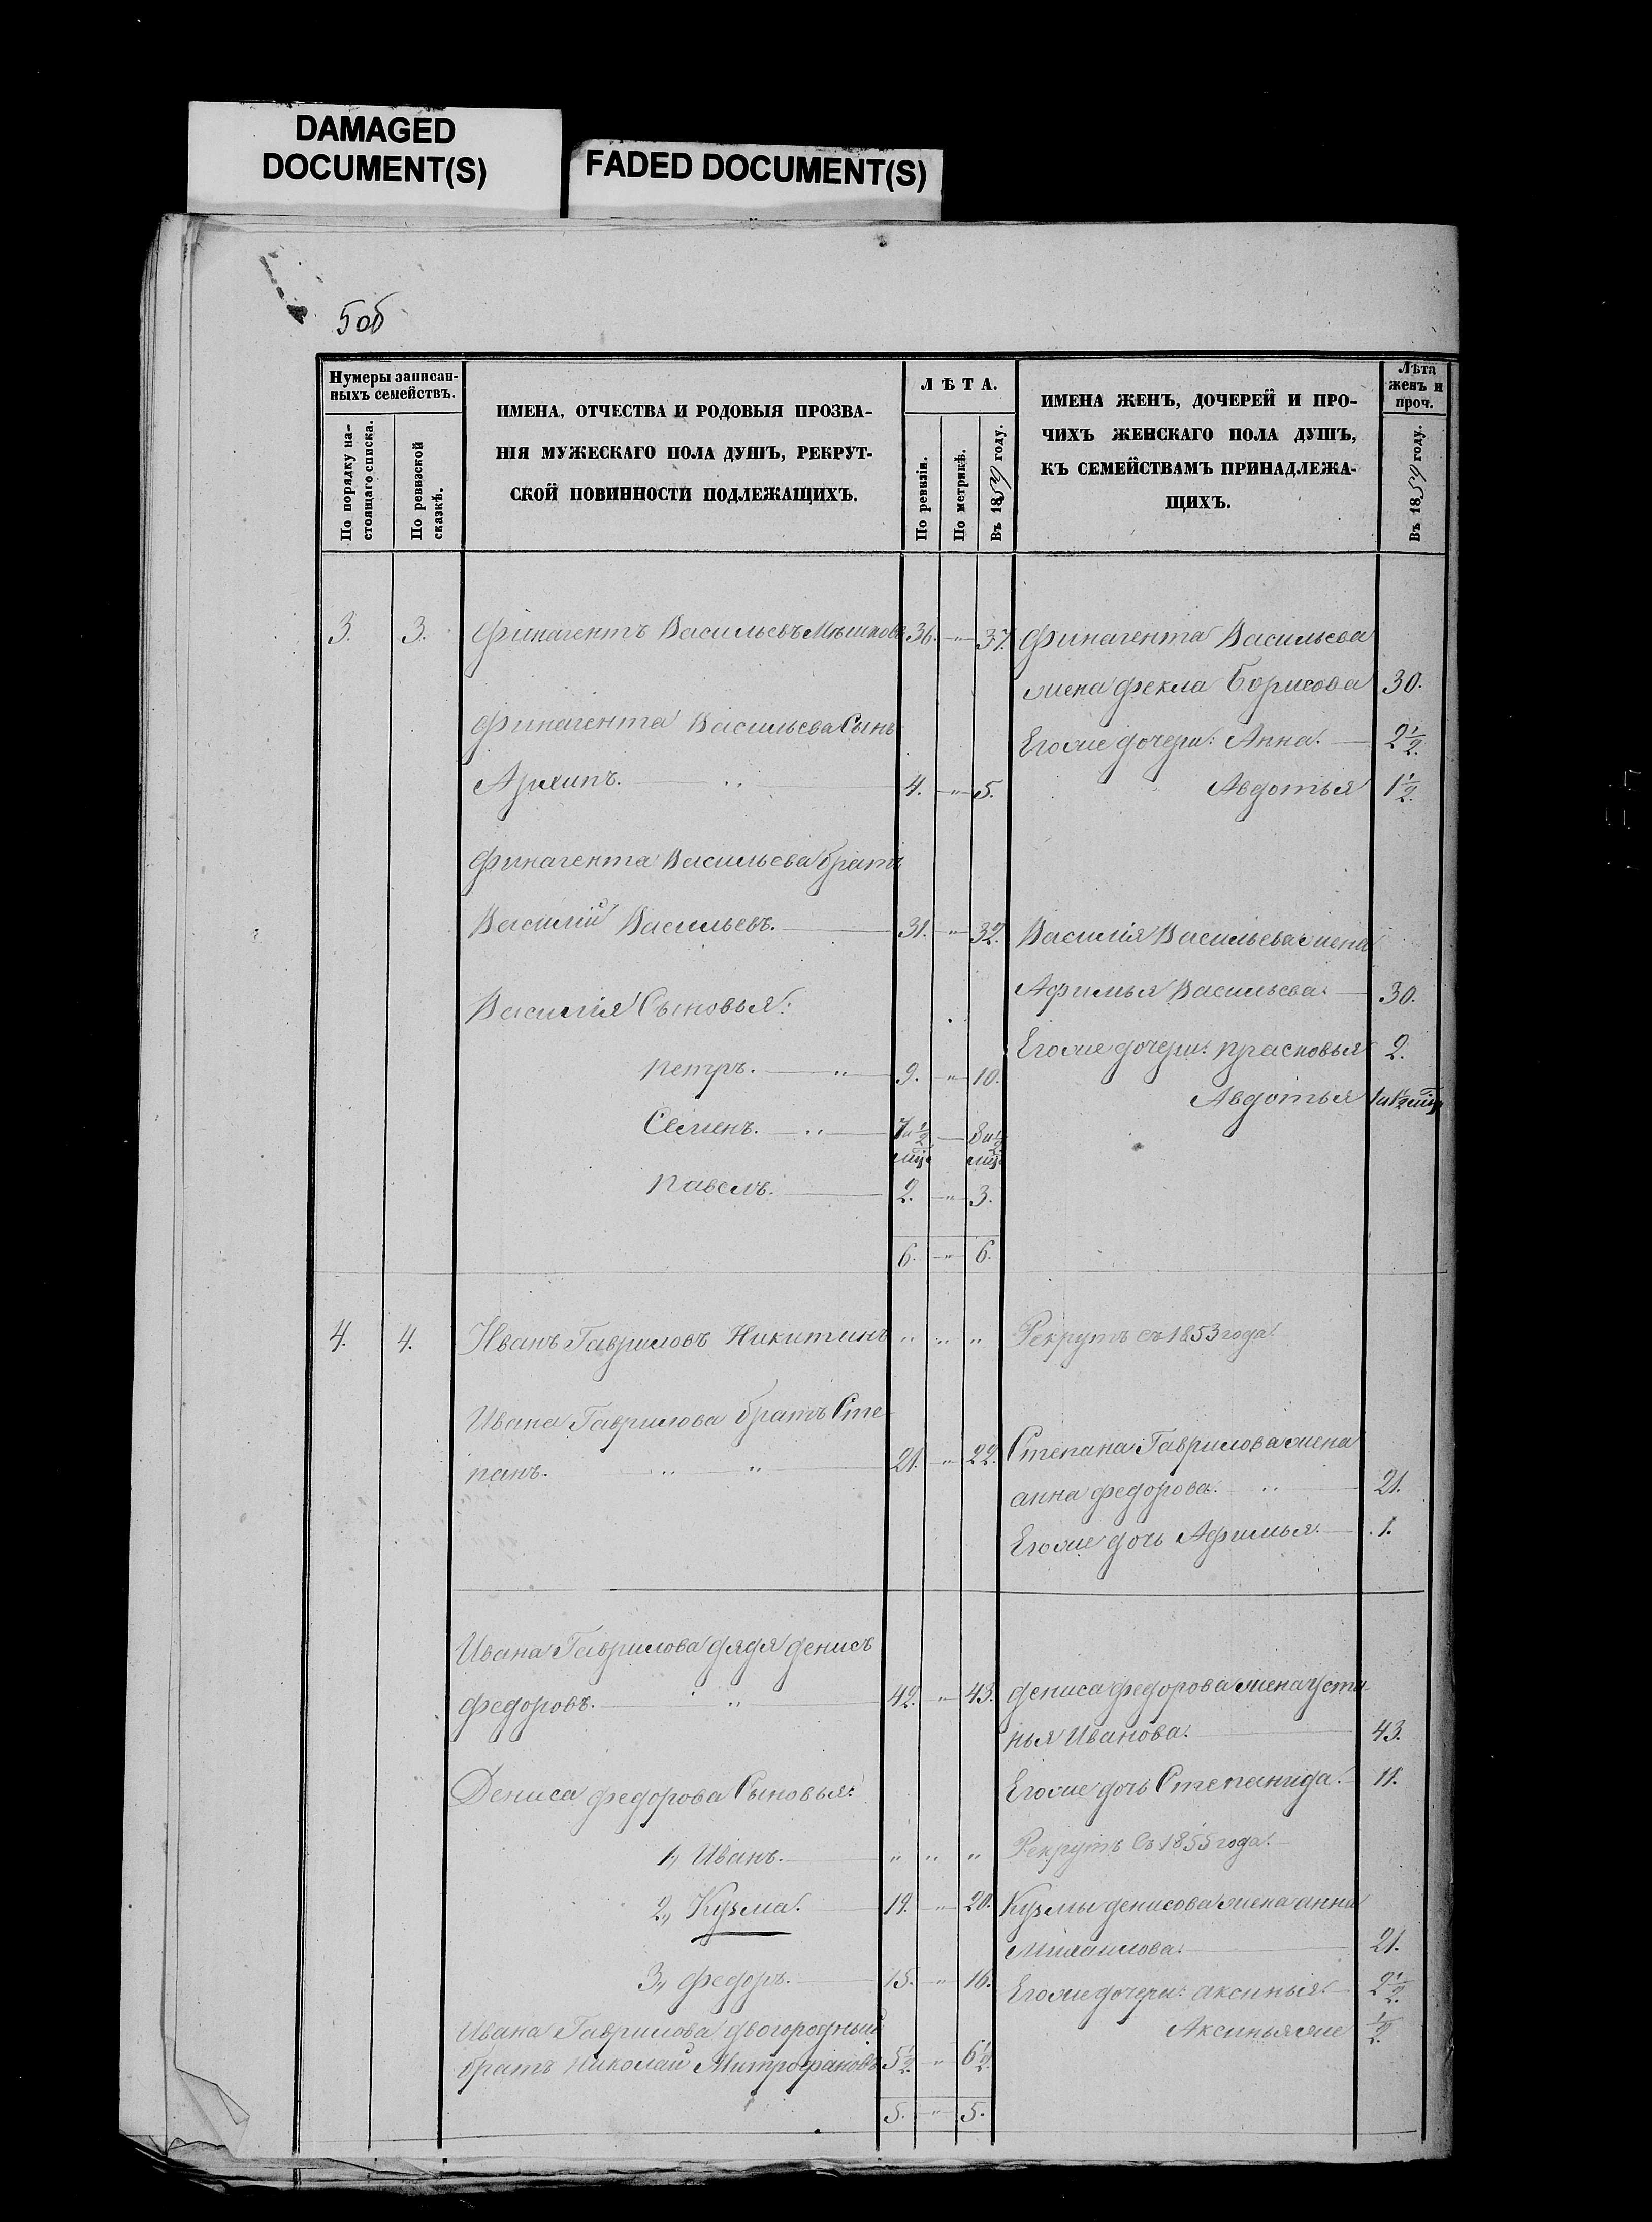 DAMAGED
DOCUMENT(S)
FADED DOCUMENT(S)
5 об
Нумеры записан-
ныхъ семействъ.
По порядку на-
стоящаго списка.
По ревизской
сказкѣ.
ИМЕНА, ОТЧЕСТВА И РОДОВЫЯ ПРОЗВА-
НІЯ МУЖЕСКАГО ПОЛА ДУШЪ, РЕКРУТ-
СКОЙ ПОВИННОСТИ ПОДЛЕЖАЩИХЪ.
ЛѢТА.
По ревизіи.
По метрикѣ.
Въ 1859 году.
ИМЕНА ЖЕНЪ, ДОЧЕРЕЙ И ПРО-
ЧИХЪ ЖЕНСКАГО ПОЛА ДУШЪ,
КЪ СЕМЕЙСТВАМЪ ПРИНАДЛЕЖА-
ЩИХЪ.
Лѣта
женъ и
проч.
Въ 1859 году.
3. 3. Финагентъ Васильевъ Мѣшковъ 36. „ 37. Финагента Васильева
жена Фекла Борисова 30.
Финагента Васильева Сынъ
Его же дочери: Анна. 2 1/2.
Архипъ. 4. „ 5. Авдотья 1 1/2.
Финагента Васильева братъ
Василий Васильевъ. 31. „ 32. Василія Васильева жена
Афимья Васильева. 30.
Василія Сыновья:
Его же дочери: Прасковья 2.
Петръ. 9. „ 10.
Авдотья
Семенъ. 7 и 1/2 мцъ 8 и 1/2 мцъ
Павелъ. 2. „ 3.
6. „ 6.
4. 4. Иванъ Гавриловъ Никитинъ „ „ „ Рекрутъ съ 1853 года.
Ивана Гаврилова братъ Сте-
панъ. 21. „ 22. Степана Гаврилова жена
анна федорова. 21.
Его же дочь Афимья. 1.
Ивана Гаврилова дядя денисъ
федоровъ. 42. „ 43. дениса федорова жена усти
нья Иванова. 43.
Дениса федорова Сыновья: Его же дочь Степанида. 11.
1, Иванъ. „ „ „ Рекрутъ Съ 1855 года.
2, Кузма. 19. „ 20. Кузмы денисова жена анна
Михаилова. 21.
3, федоръ. 15. „ 16. Его же дочери: аксинья. 2 1/2.
Ивана Гаврилова двогородный Аксинья же 1/2.
братъ Николай Митрофановъ 5 1/2. „ 6 1/2.
5. „ 5.